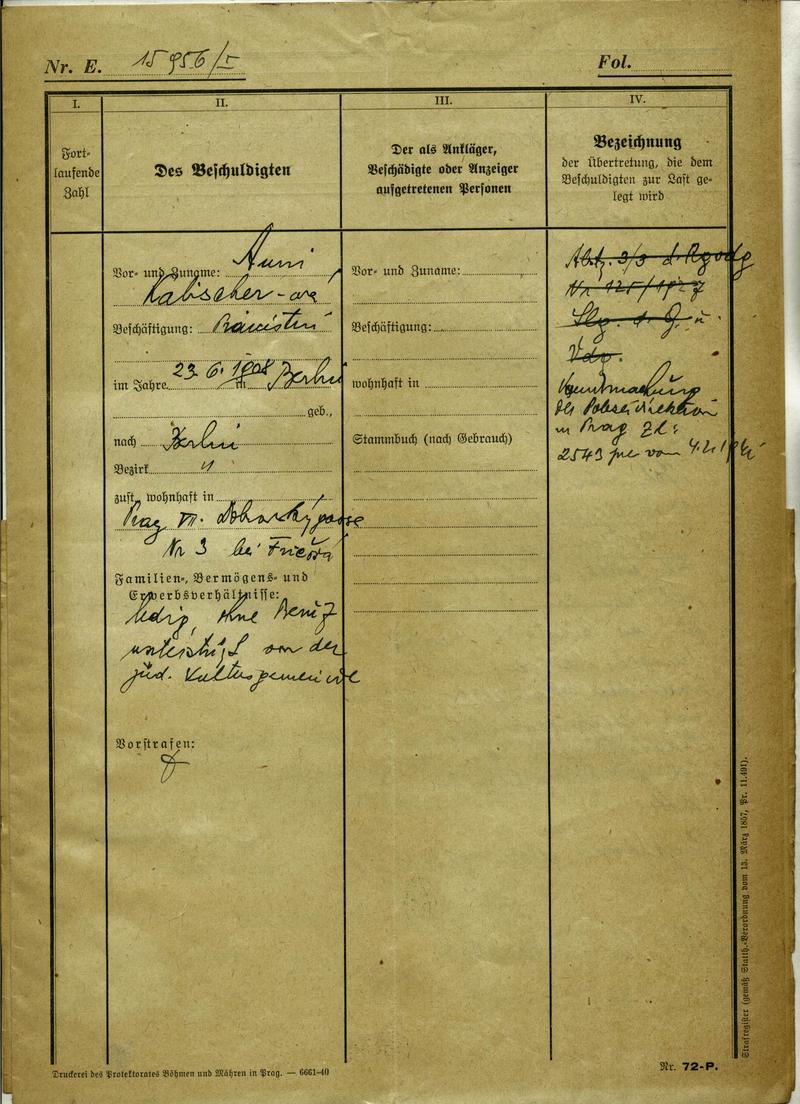 Nr. E. 15956/I
Fol.
I.
Fort-
laufende
Zahl
II.
Des Beschuldigten
III.
Der als Ankläger,
Beschädigte oder Anzeiger
aufgetretenen Personen
IV.
Bezeichnung
der Übertretung, die dem
Beschuldigten zur Last ge-
legt wird
Vor- und Zuname: Anni
Kabischer-ova
Beschäftigung:
im Jahre 23. 6. 1908 Berlin
geb.,
nach Berlin
Bezirk "
zust. wohnhaft in
Prag VII.
Nr 3 bei
Familien-, Vermögens- und
Erwerbsverhältnisse:
ledig, ohne Beruf
unterstützt von der
jüd. Kultusgemeinde
Vorstrafen:
Vor- und Zuname:
Beschäftigung:
wohnhaft in
Stammbuch (nach Gebrauch)
Nr 125/1927
Slg. d. G. u.
Vdg.
Kundmachung
der Polizeidirektion
in Prag Zl:
2543 vom
Strafregister (gemäß Statth.-Verordnung vom 13. März 1857, Pr. 11.491).
Druckerei des Protektorates Böhmen und Mähren in Prag. — 6661-40
Nr. 72-P.